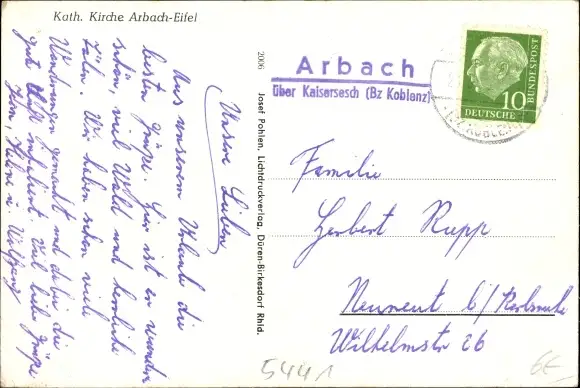 Kath. Kirche Arbach-Eifel
Unsere Lieben
Aus unserem Urlaub die
besten Grüße. Hier ist es wunder-
schön, viel Wald und herrliche
Wir haben schon viele
Wanderungen gemacht und dabei die
gute inhaliert. Viel liebe Grüße
Helene u. Wolfgang
2006
Josef Pohlen, Lichtdruckverlag, Düren-Birkesdorf Rhld.
Arbach
über Kaisersesch (Bz Koblenz)
DEUTSCHE
BUNDESPOST
10
Familie
Herbert Rupp
Neureut b/ Karlsruhe
Wilhelmstr 26
5441
6E